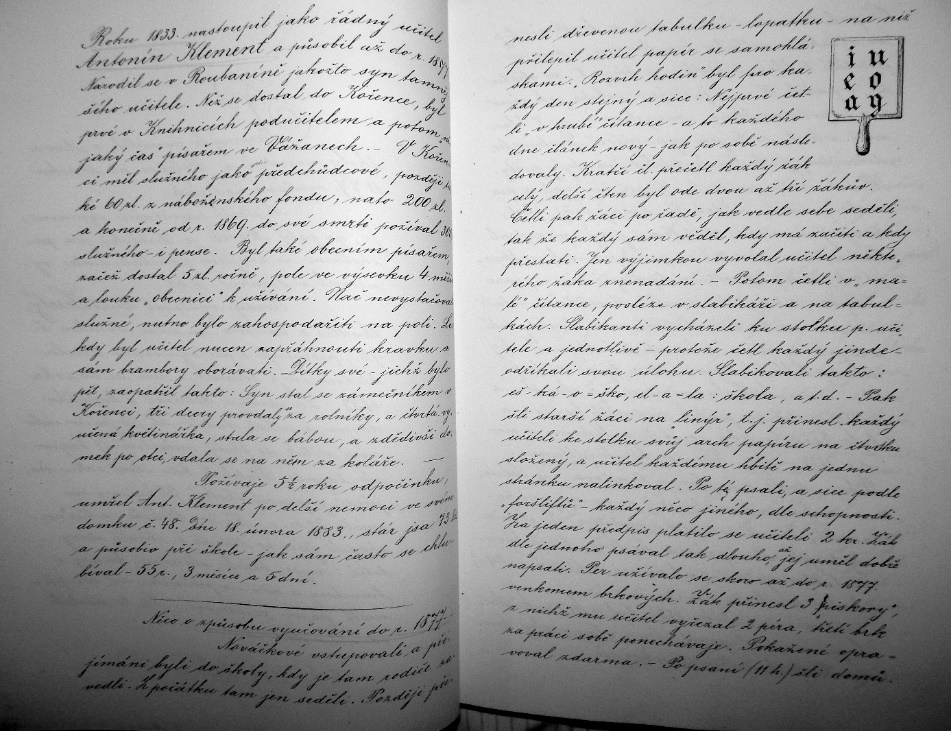 Roku 1833. nastoupil jako řádný učitel
Antonín Klement a působil až do r. 1877.
Narodil se v Roubaníně jakožto syn tamněj-
šího učitele. Než se dostal do Kořence, byl
prvé v Knihnicích podučitelem a potom
jaký čas písařem ve Vážanech. – V Kořen-
ci měl služného jako předchůdcové, později
ké 60 zl. z náboženského fondu, na to 200 zl.
a konečně od r. 1869. do své smrti požíval
služného i pense. Byl také obecním písařem,
začež dostal 5 zl. ročně, pole ve výsevku 4
a louku „obecnici" k užívání. Nač nevystačovalo
služné, nutno bylo zahospodařiti na poli.
kdy byl učitel nucen zapřáhnouti kravku a
sám brambory oborávati. Dítky své – jichž bylo
pět, zaopatřil takto: Syn stal se zámečníkem v
Kořenci, tři dcery provdaly se za rolníky, a čtvrtá vy-
učená květinářka, stala se bábou, a zdědivši do-
mek po otci, vdala se na něm za koláře. —
Požívaje 5½ roku odpočinku,
umřel Ant. Klement po delší nemoci ve svém
domku č. 48. dne 18. února 1883., stár jsa 73
a působiv při škole – jak sám často se chlu-
bíval – 55 r., 3 měsíce a 5 dní.
Něco o způsobu vyučování do r. 1877.
Nováčkové vstupovali a při-
jímáni byli do školy, kdy je tam rodiče za-
vedli. Z počátku tam jen seděli. Později při-
nesli dřevenou tabulku – lopatku – na niž
přilepil učitel papír se samohlá-
skami. „Rozvrh hodin" byl pro ka-
ždý den stejný a sice: Nejprvé čet-
li „v hrubé" čítance – a to každého
dne článek nový – jak po sobě násle-
dovaly. Kratší čl. přečetl každý žák
celý, delší čten byl ode dvou až tří žákův.
Četli pak žáci po řadě, jak vedle sebe seděli,
tak že každý sám věděl, kdy má začíti a kdy
přestati. Jen výjimkou vyvolal učitel někte-
rého žáka znenadání. – Potom četli v „ma-
lé" čítance, posléze v slabikáři a na tabul-
kách. Slabikanti vycházeli ku stolku p. uči-
tele a jednotlivě – protože četl každý jinde –
odříkali svou úlohu. Slabikovali takto:
eš-ká-o-ško, el-a-la: škola, a t.d. – Pak
šli starší žáci na „linýr", t.j. přinesl každý
učiteli ke stolku svůj arch papíru na čtvrtku
složený, a učitel každému hbitě na jednu
stránku nalinkoval. Po té psali, a sice podle
„foršriftů" – každý něco jiného, dle schopnosti.
Za jeden předpis platilo se učiteli 2 kr. Žák
dle jednoho psával tak dlouho, až jej uměl dobře
napsati. Per užívalo se skoro až do r. 1877.
venkoncem brkových. Žák přinesl 3 „piskory",
z nichž mu učitel vyřezal 2 péra, třetí brk
za práci sobě ponechávaje. Pokažené opra-
voval zdarma. – Po psaní (11 h.) šli domů.
i u
e o
a y